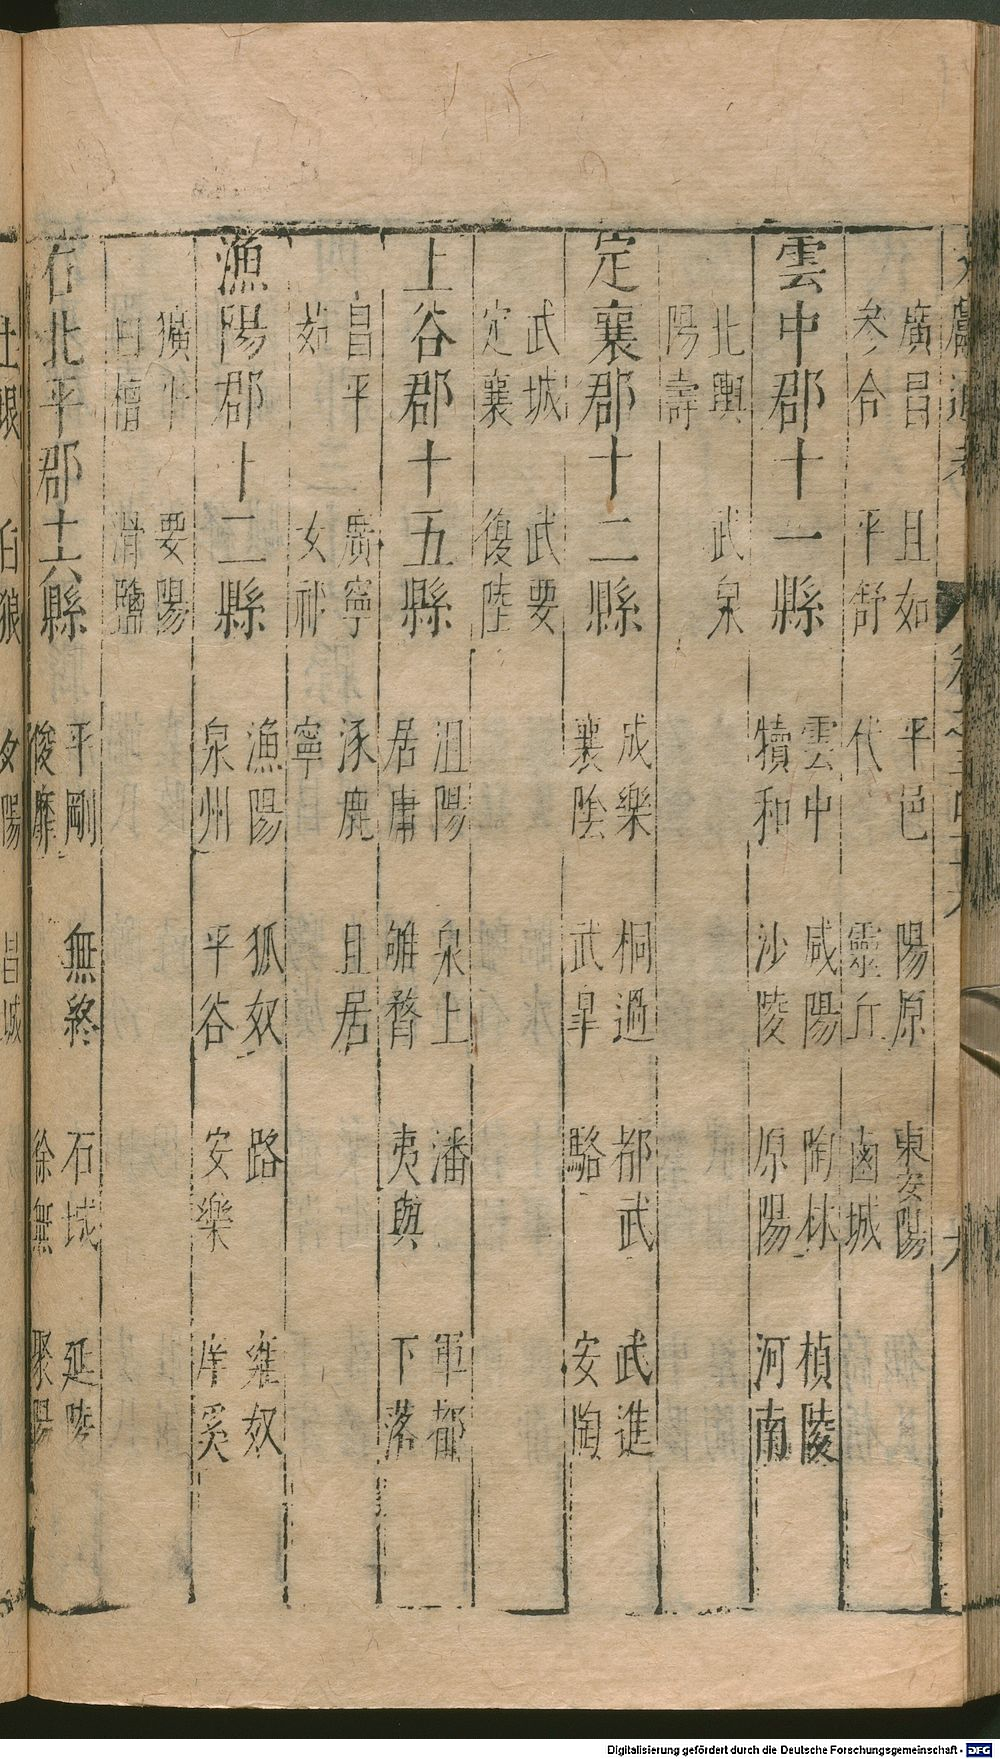 廣昌 且如 平邑 陽原 東安陽
叅合 平舒 代 靈丘 鹵城
雲中郡十一縣 雲中 咸陽 陶林 楨陵
犢和 沙陵 原陽 河南
北輿 武泉
陽壽
定襄郡十二縣 成樂 桐過 都武 武進
襄陰 武皐 駱 安陶
武城 武要
定襄 復陸
上谷郡十五縣 沮陽 泉上 潘 軍都
居庸 雊瞀 夷輿 下落
昌平 廣寧 涿鹿 且居
茹 女祁 寧
漁陽郡十二縣 漁陽 狐奴 路 雍奴
泉州 平谷 安樂 厗奚
獷平 要陽
白檀 滑鹽
右北平郡十六縣 平剛 無終 石城 延陵
俊靡 徐無 聚陽
土垠 白狼 夕陽 昌城
Digitalisierung gefördert durch die Deutsche Forschungsgemeinschaft - DFG